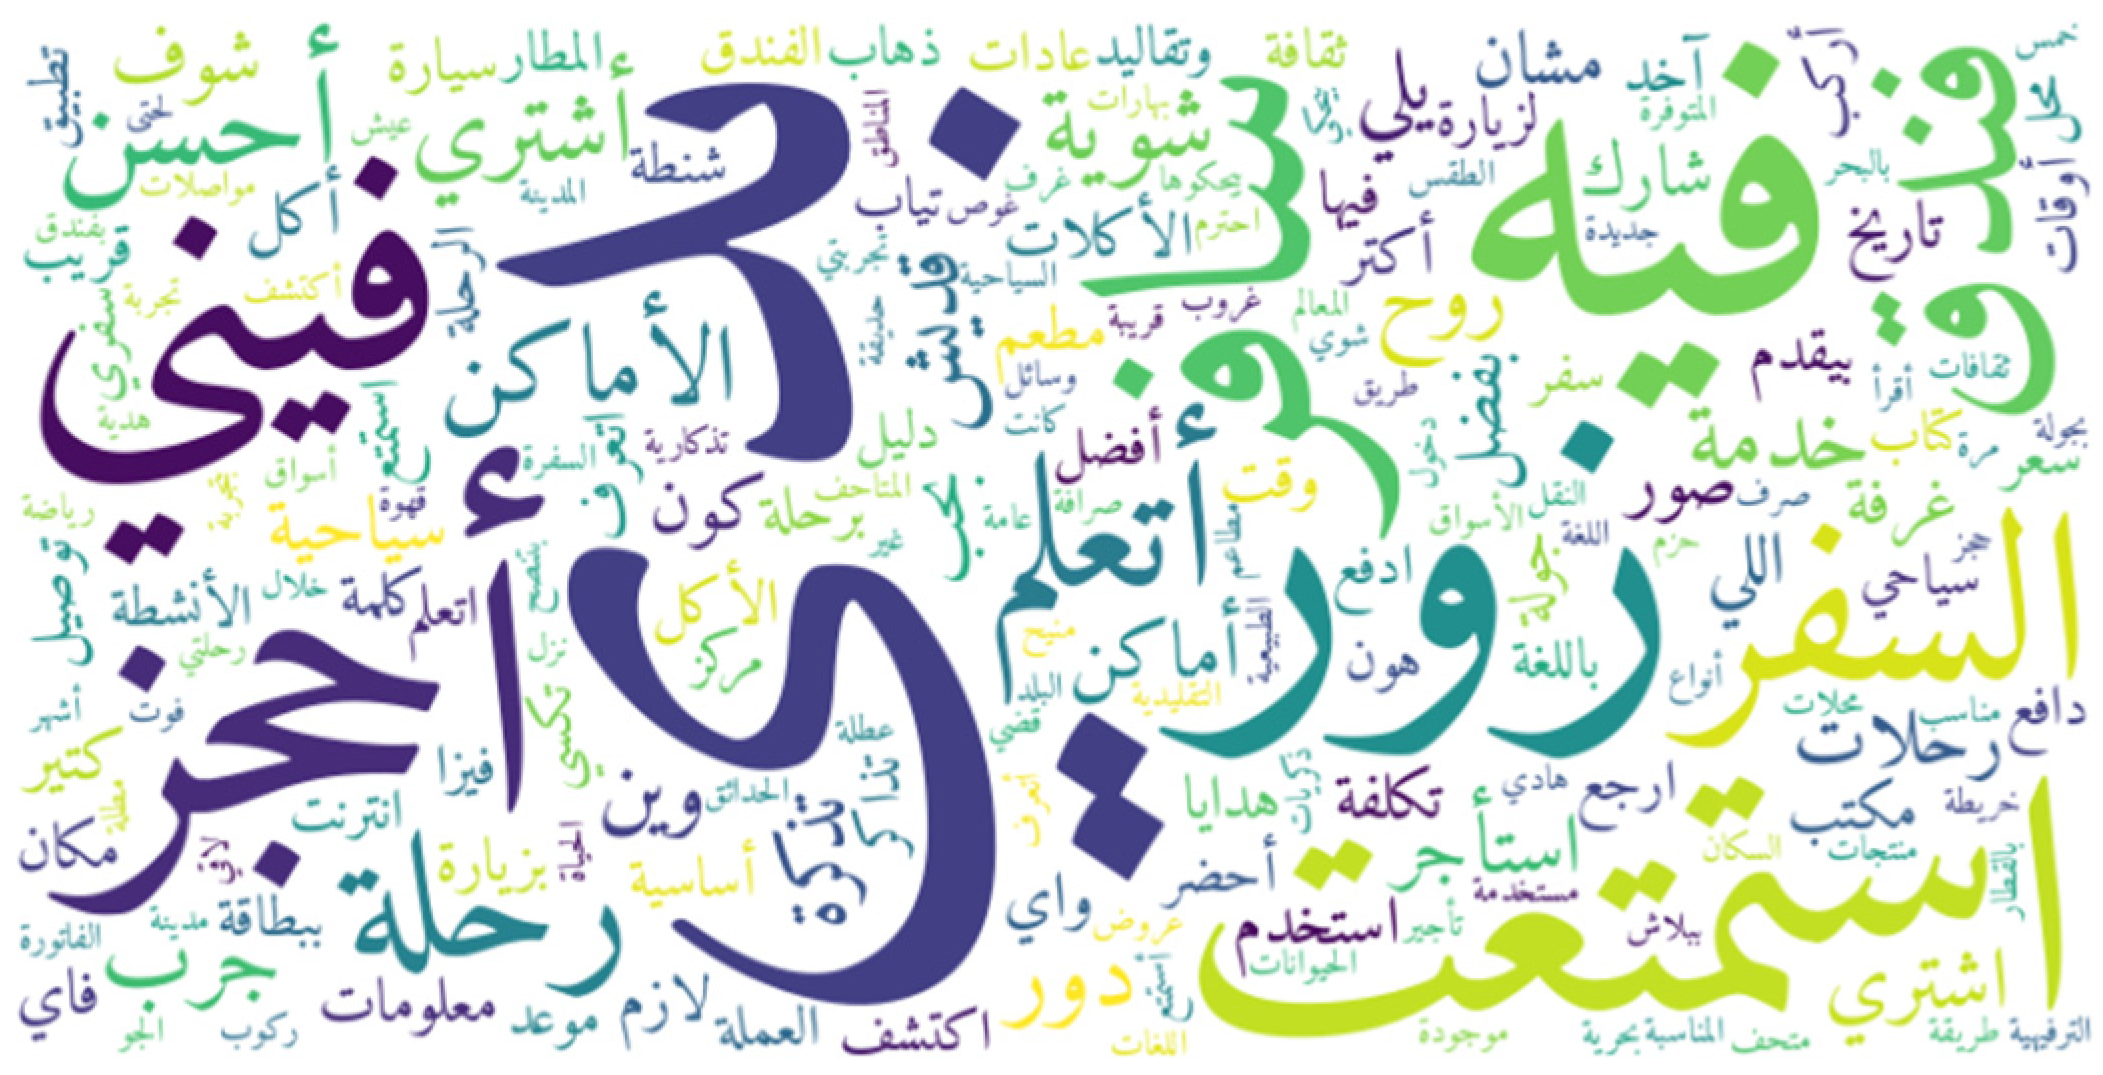 بدي
فيه
زور
استمتعت
السفر
أحجز
فيني
سافر
فندق
رحلة
أتعلم
أحسن
الأماكن
اشتري
شوف
سيارة
المطار
الفندق
ذهاب
عادات
وتقاليد
ثقافة
مشان
آخد
أركب
خمس
محل
أوقات
تطبيق
عيش
شنطة
المناطق
بهارات
شوية
يلي
لزيارة
المتوفرة
شارك
بالبحر
تاريخ
مواصلات
أكل
المدينة
تياب
غوص
غرف
بيحكوها
احترم
فيها
الطقس
أكتر
جديدة
بفندق
قريب
الرحلة
الأكلات
السياحية
قديش
حديقة
تجربة
أكتشف
سفري
هدية
استمتع
مطعم
قريبة
غروب
المعالم
شوي
روح
وسائل
كانت
طريق
سفر
بفضل
بيقدم
ثقافات
أقرأ
خدمة
كتاب
مرة
بجولة
سعر
أفضل
دليل
تذكارية
السفرة
اتعرف
أسواق
قهوة
سياحية
رياضة
كون
برحلة
المتاحف
غير
عامة
صرافة
وقت
مطاعم
دخول
الأسواق
النقل
صور
صرف
غرفة
حجز
اللغة
حزم
اللي
سياحي
توصيل
الأنشطة
خلال
كلمة
اتعلم
بتنصح
نزل
رحلتي
الأكل
مركز
منيح
أماكن
البلد
التقليدية
الطبيعية
ادفع
هون
جولة
باللغة
أنواع
محلات
مناسب
دافع
رحلات
أشهر
فوت
كتير
مطلة
مكان
فيزا
انترنت
تكسي
وين
الحدائق
عطلة
تذاكر
تذكرة
قضي
هدايا
ذكريات
تكلفة
هادي
ارجع
مكتب
خريطة
استأجر
السكان
منتجات
بالقطار
بزيارة
الحياة
أساسية
ببطاقة
مدينة
الفاتورة
جرب
فاي
الجو
ركوب
معلومات
موعد
لازم
العملة
اكتشف
واي
أحضر
عروض
استخدم
مستخدمة
تأجير
الحيوانات
ببلاش
دور
اللغات
موجودة
بحرية
المناسبة
متحف
اشتري
طريقة
الترفيهية